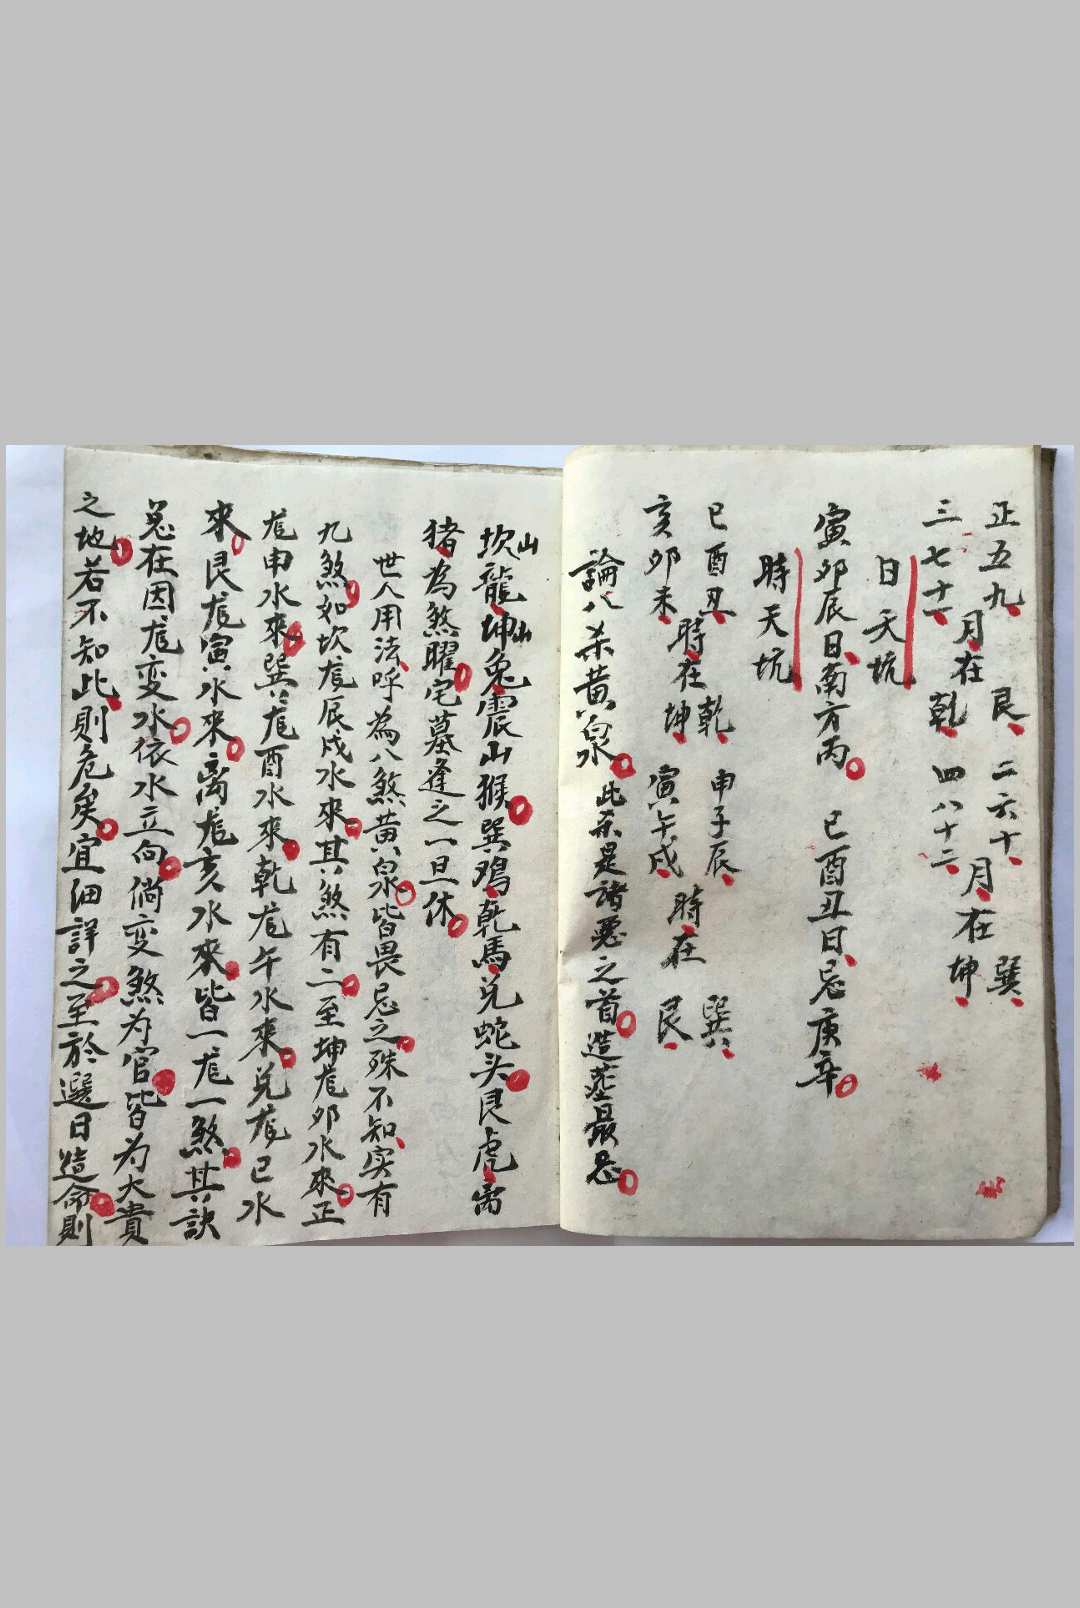 正五九
三七十一
月在
艮
乾
二六十
四八十二
月在
巽
坤
日天坑
寅卯辰日南方丙 巳酉丑日忌庚辛
時天坑
巳酉丑
亥卯未
時在
乾
坤
申子辰
寅午戌
時在
巽
艮
論八杀黄泉 此杀是諸惡之首造茔最忌
坎山龍坤山兔震山猴巽鸡乾馬兑蛇头艮虎离
猪為煞曜宅墓逢之一旦休
世人用法呼為八煞黄泉皆畏忌之殊不知实有
九煞如坎龙辰戌水來其煞有二至坤龙卯水來正
龙申水來巽龙酉水來乾龙午水來兑龙巳水
來艮龙寅水來离龙亥水來皆一龙一煞其訣
总在因龙变水依水立向倘变煞为官皆为大貴
之地若不知此則危矣宜细詳之至於選日造命則